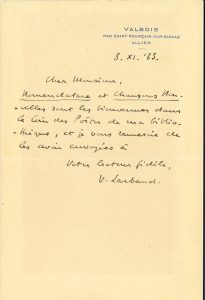 VALBOIS
PAR SAINT-POURÇAIN-SUR-SIOULE
ALLIER
8. XI. '33.
Cher Monsieur,
Nomenclature et Chansons Nou-
-velles sont les bienvenues dans
le coin des Poètes de ma biblio-
thèque, et je vous remercie de
les avoir envoyées à
Votre lecteur fidèle,
V. Larbaud.